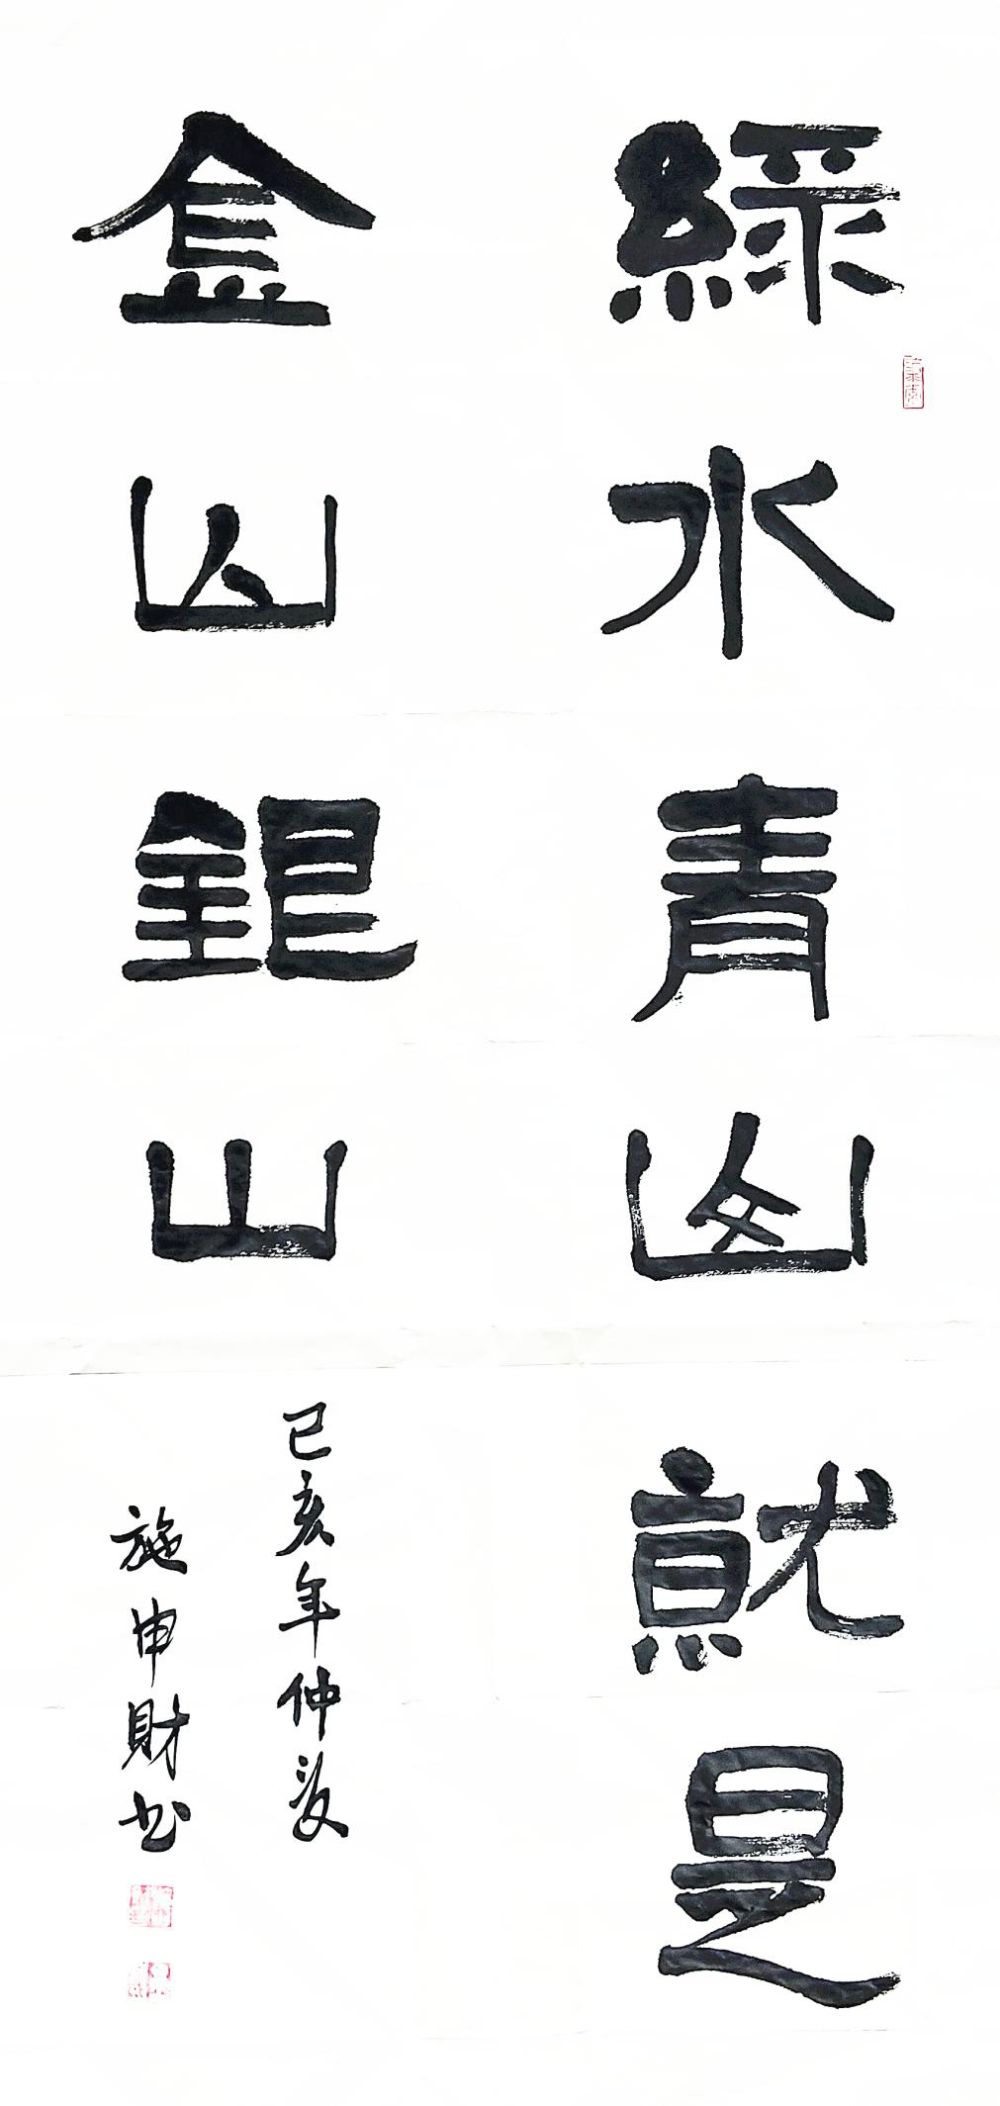 綠水青山就是
金山銀山
己亥年仲夏
施申財书